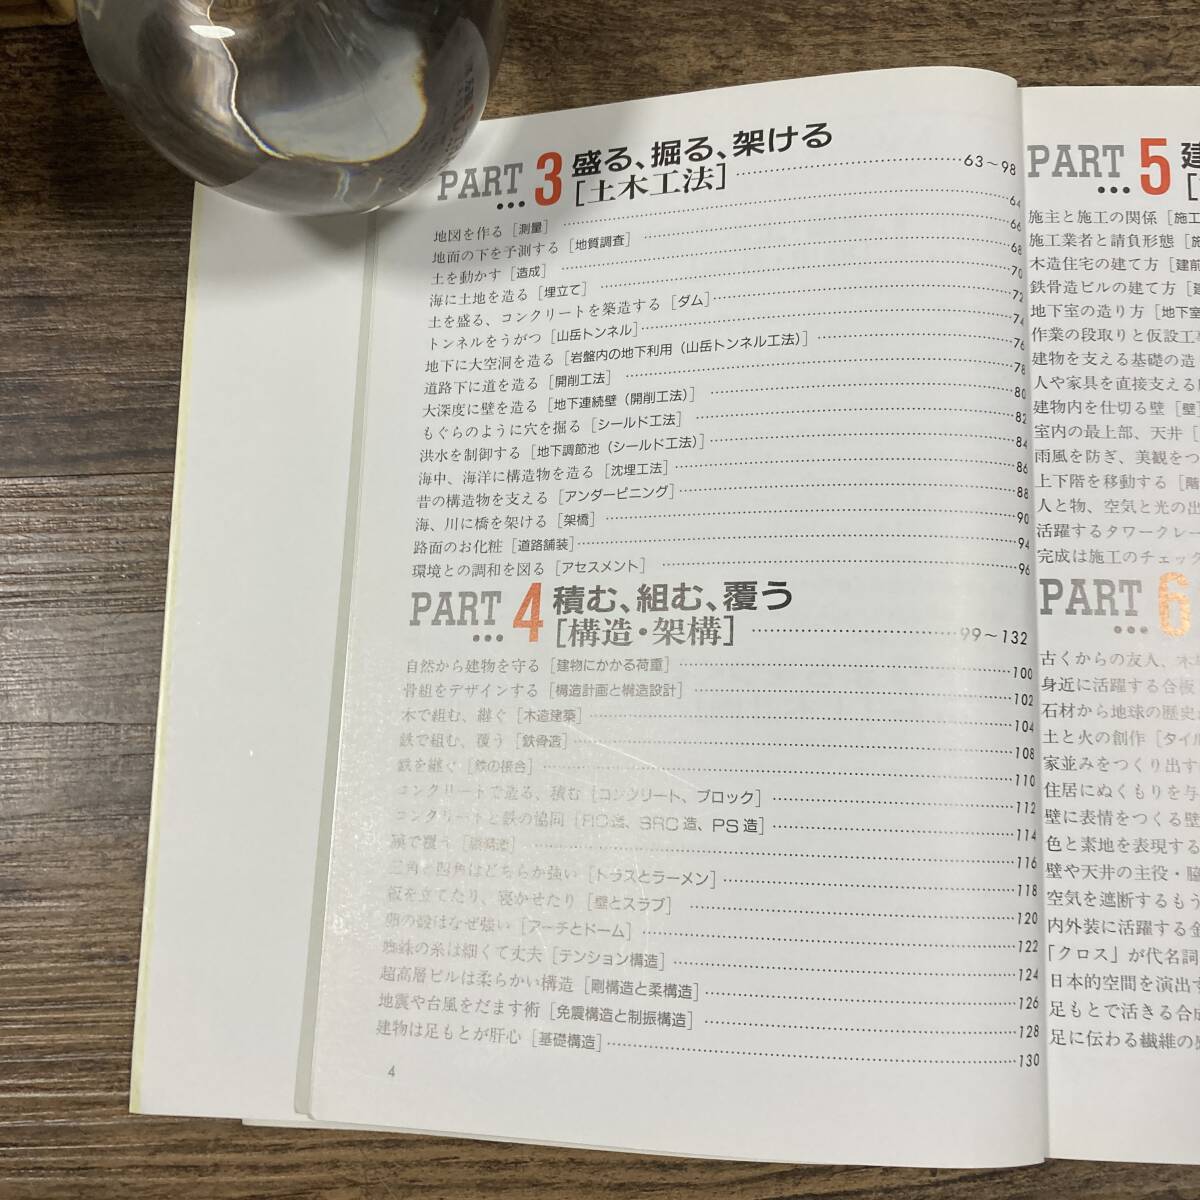 PART...3 盛る、掘る、架ける
[土木工法] 63〜98
地図を作る [測量] 64
地面の下を予測する [地質調査] 66
土を動かす [造成] 68
海に土地を造る [埋立て] 70
土を盛る、コンクリートを築造する [ダム] 72
トンネルをうがつ [山岳トンネル] 74
地下に大空洞を造る [岩盤内の地下利用（山岳トンネル工法）] 76
道路下に道を造る [開削工法] 78
大深度に壁を造る [地下連続壁（開削工法）] 80
もぐらのように穴を掘る [シールド工法] 82
洪水を制御する [地下調節池（シールド工法）] 84
海中、海洋に構造物を造る [沈埋工法] 86
昔の構造物を支える [アンダーピニング] 88
海、川に橋を架ける [架橋] 90
路面のお化粧 [道路舗装] 94
環境との調和を図る [アセスメント] 96
PART...4 積む、組む、覆う
[構造・架構] 99〜132
自然から建物を守る [建物にかかる荷重] 100
骨組をデザインする [構造計画と構造設計] 102
木で組む、継ぐ [木造建築] 104
鉄で組む、覆う [鉄骨造] 108
鉄を継ぐ [鉄の接合] 110
コンクリートで造る、積む [コンクリート、ブロック] 112
コンクリートと鉄の協同 [RC造、SRC造、PS造] 114
で覆う 116
三角と四角はどちらが強い [トラスとラーメン] 118
板を立てたり、寝かせたり [壁とスラブ] 120
卵の殻はなぜ強い [アーチとドーム] 122
蜘蛛の糸は細くて丈夫 [テンション構造] 124
超高層ビルは柔らかい構造 [剛構造と柔構造] 126
地震や台風をだます術 [免震構造と制振構造] 128
建物は足もとが肝心 [基礎構造] 130
4
PART...5 建
施主と施工の関係 [施工
施工業者と請負形態 [施
木造住宅の建て方 [建前
鉄骨造ビルの建て方 [建
地下室の造り方 [地下室
作業の段取りと仮設工事
建物を支える基礎の造
人や家具を直接支える
建物内を仕切る壁 [壁]
室内の最上部、天井 [
雨風を防ぎ、美観をつ
上下階を移動する [階
人と物、空気と光の出
活躍するタワークレー
完成は施工のチェック
PART...6
古くからの友人、木
身近に活躍する合板
石材から地球の歴史
土と火の創作 [タイル
家並みをつくり出す
住居にぬくもりを与
壁に表情をつくる壁
色と素地を表現する
壁や天井の主役・脇
空気を遮断するもう
内外装に活躍する金
「クロス」が代名詞
日本的空間を演出す
足もとで活きる合成
足に伝わる繊維の